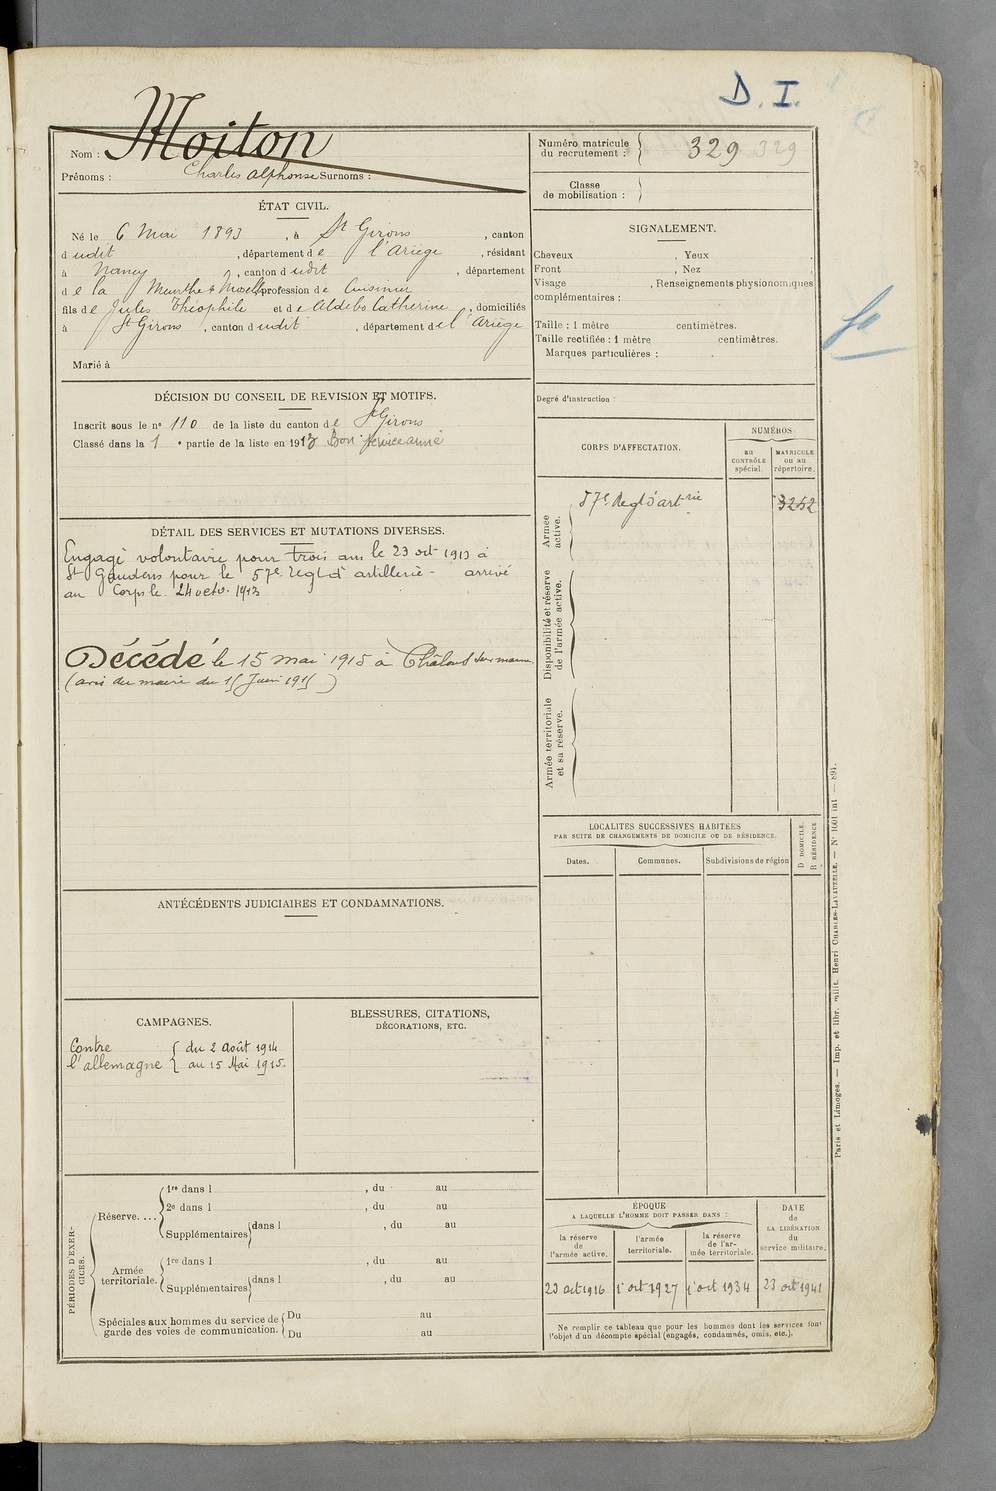 D. I.
Nom : Moiton
Prénoms : Charles Alphonse Surnoms :
ÉTAT CIVIL.
Né le 6 Mai 1893, à St Girons, canton
d udit, département de l'Ariège, résidant
à Nancy, canton dudit, département
de la Meurthe & Moselle, profession de Cuisinier
fils de Jules Théophile et de Aldebo Catherine, domiciliés
à St Girons, canton dudit, département de l'Ariège
Marié à
DÉCISION DU CONSEIL DE REVISION ET MOTIFS.
Inscrit sous le n° 110 de la liste du canton de St Girons
Classé dans la 1 e partie de la liste en 1913 Bon service armé
DÉTAIL DES SERVICES ET MUTATIONS DIVERSES.
Engagé volontaire pour trois ans le 23 oct 1913 à
St Gaudens pour le 57e Regt d'artillerie - arrivé
au Corps le 24 octo. 1913
Décédé le 15 mai 1915 à Châlons sur marne
(avis du maire du 15 Juin 1915)
ANTÉCÉDENTS JUDICIAIRES ET CONDAMNATIONS.
CAMPAGNES.
Contre { du 2 Août 1914
l'allemagne { au 15 Mai 1915.
BLESSURES, CITATIONS,
DÉCORATIONS, ETC.
PÉRIODES D'EXER-
CICES.
Réserve....
1re dans l , du au
2e dans l , du au
Supplémentaires dans l , du au
Armée
territoriale.
1re dans l , du au
Supplémentaires dans l , du au
Spéciales aux hommes du service de Du au
garde des voies de communication. Du au
Numéro matricule
du recrutement : 329 329
Classe
de mobilisation :
SIGNALEMENT.
Cheveux , Yeux .
Front , Nez
Visage , Renseignements physionomiques
complémentaires :
Taille : 1 mètre centimètres.
Taille rectifiée : 1 mètre centimètres.
Marques particulières :
Degré d'instruction :
CORPS D'AFFECTATION.
NUMÉROS
au
CONTRÔLE
spécial.
MATRICULE
ou au
répertoire.
Armée
active.
57e Regt d'artrie
3252
Disponibilité et réserve
de l'armée active.
Armée territoriale
et sa réserve.
LOCALITÉS SUCCESSIVES HABITÉES
PAR SUITE DE CHANGEMENTS DE DOMICILE OU DE RÉSIDENCE.
Dates.
Communes.
Subdivisions de région
D DOMICILE.
R RÉSIDENCE
ÉPOQUE
A LAQUELLE L'HOMME DOIT PASSER DANS :
la réserve
de
l'armée active.
l'armée
territoriale.
la réserve
de l'ar-
mée territoriale.
DATE
de
LA LIBÉRATION
du
service militaire.
23 oct 1916
1er oct 1927
1er oct 1934
23 oct 1941
Ne remplir ce tableau que pour les hommes dont les services font
l'objet d'un décompte spécial (engagés, condamnés, omis, etc.).
Paris et Limoges. — Imp. et libr. milit. Henri CHARLES-LAVAUZELLE. — N° 1601 int — 894.